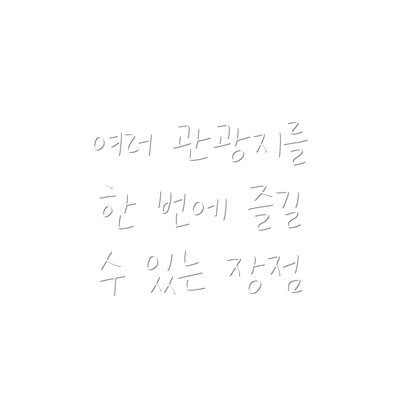 여러 관광지를
한 번에 즐길
수 있는 장점